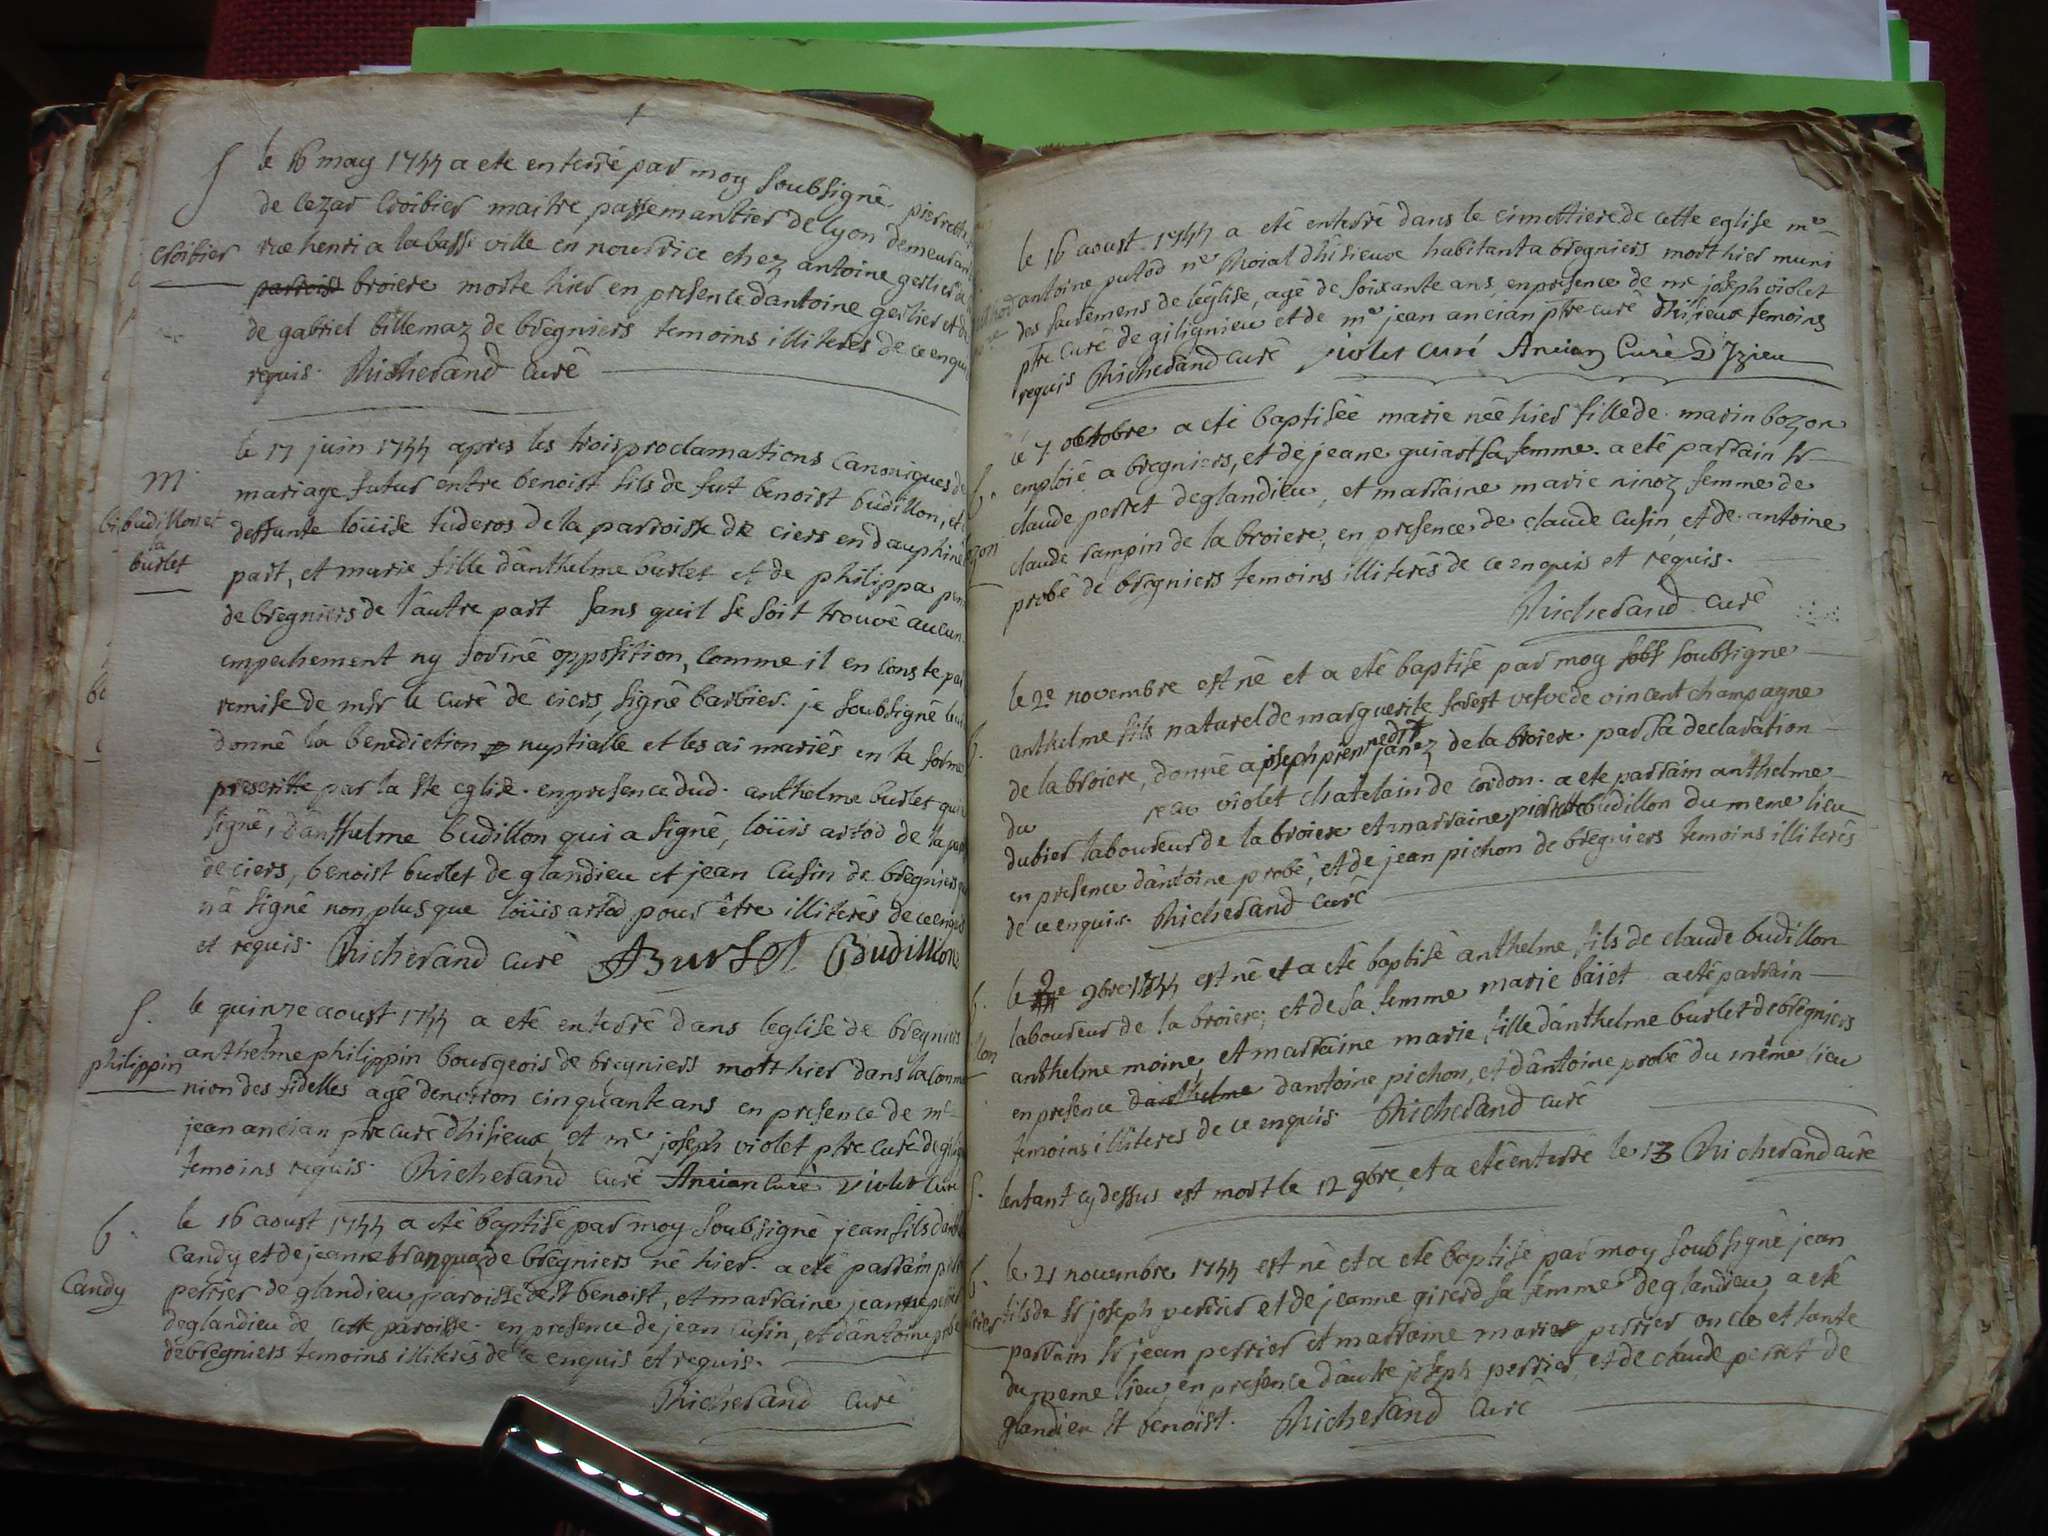 S
le 16 may 1744 a ete enterré par moy soubsigné pierrette
de cezar croibier maitre passemantier de lyon demeurant
croibier
rue henri a la basse ville en nourrice chez antoine gerlier de
parroisse broiere morte hier en presence d'antoine gerlier et de
de gabriel billemaz de bregniers temoins illiteres de ce enquis
requis. Richerand curé
le 17 juin 1744 apres les trois proclamations canoniques de
m.
mariage futur entre benoist fils de fut benoist budillon, et
budillon et
la
burlet
deffunte loüise tuderos de la parroisse de ciers en dauphiné
part, et marie fille d'anthelme burlet et de philippa
de bregniers de l'autre part sans quil se soit trouvé aucun
empechement ny formé opposition, comme il en conste par
remise de msr le curé de ciers, signé barbier. je soubsigné leur
donné la benediction nuptialle et les ai mariés en la forme
prescritte par la ste eglise. en presence dud. anthelme burlet qui
signé, d'anthelme budillon qui a signé, loüis artod de la par
de ciers, benoist burlet de glandieu et jean cusin de bregniers
n'a signé non plus que loüis artod pour être illiterés de ce enquis
et requis. Richerand curé ABurlet Budillion
S.
le quinze aoust 1744 a eté enterré dans leglise de bregniers
philippin
anthelme philippin bourgeois de bregniers mort hier dans la commu
nion des fidelles agé denviron cinquante ans en presence de me
jean ancian ptre curé d'hisieux, et me joseph violet ptre curé de gili
temoins requis. Richerand curé Ancian curé violet curé
b.
le 16 aoust 1744 a eté baptisé par moy soubsigné jean fils d'anth
candy et de jeanne branquaz de bregniers né hier. a eté parrain
Candy
perrier de glandieu paroisse de st benoist, et marraine jeanne
de glandieu de cette paroisse. en presence de jean cusin, et d'antoine probé
de bregniers temoins illiterés de ce enquis et requis.
Richerand curé
le 16 aoust 1744 a eté enterré dans le cimettiere de cette eglise me
antoine putod ne roial d'hisieux habitant a bregniers mort hier muni
des sacremens de l'église, agé de soixante ans, en presence de me joseph violet
ptre curé de gilignieu et de me jean ancian ptre curé d'hisieux temoins
requis Richerand curé violet curé Ancian Curé d'Izieu
le 7 octobre a eté baptisée marie née hier fille de marin bozon
b.
emploié a bregniers, et de jeane guiart sa femme. a eté parrain sr
claude perret de glandieu, et marraine marie ninoz femme de
claude rampin de la broiere, en presence de claude cusin, et de antoine
probé de bregniers temoins illiterés de ce enquis et requis.
Richerand curé
le 2e novembre est né et a eté baptisé par moy sobs soubsigné
b.
anthelme fils naturel de marguerite forest vefve de vincent champagne
de la broiere, donné a joseph janez de la broiere par sa declaration
du reçu violet chatelain de cordon. a eté parrain anthelme
dubier laboureur de la broiere et marraine pierrette budillon du meme lieu
en presence d'antoine probé, et de jean pichon de bregniers temoins illiterés
de ce enquis. Richerand curé
le 9bre 1744 est né et a eté baptisé anthelme, fils de claude budillon
laboureur de la broiere, et de sa femme marie baiet a eté parrain
anthelme moine, et marraine marie, fille d'anthelme burlet de bregniers
en presence d'anthelme d'antoine pichon, et d'antoine probé du même lieu
temoins illiteres de ce enquis Richerand curé
S.
lenfant cy dessus est mort le 12 9bre, et a eté enterré le 13 Richerand curé
b.
le 21 novembre 1744 est né et a eté baptisé par moy soubsigné jean
fils de sr joseph perrier et de jeanne girerd sa femme de glandieu, a eté
parrain sr jean perrier et marraine marie perrier oncle et tante
du meme lieu, en presence d'autre joseph perrier, et de claude perret de
glandieu st benoist. Richerand curé